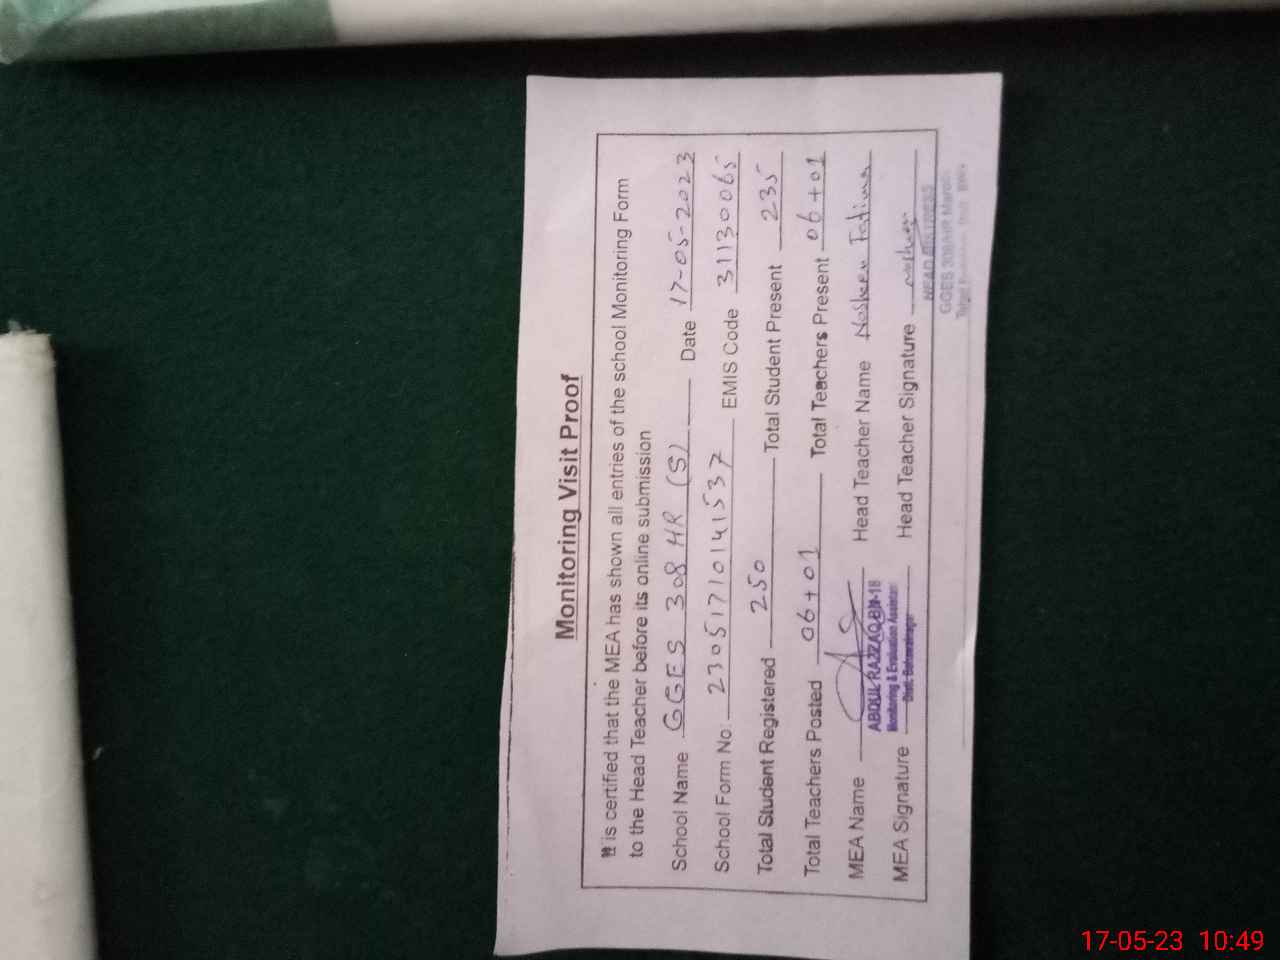 Monitoring Visit Proof
It is certified that the MEA has shown all entries of the school Monitoring Form
to the Head Teacher before its online submission
School Name GGES 308 HR (S) Date 17-05-2023
School Form No: 23051710141537 EMIS Code 31130065
Total Student Registered 250 Total Student Present 235
Total Teachers Posted 06+01 Total Teachers Present 06+01
MEA Name Head Teacher Name Nosheen Fatima
ABDUL RAZZAQ
Monitoring & Evaluation Assistant
Distt. Bahawalnagar
MEA Signature Head Teacher Signature
HEAD MISTRESS
GGES 308/HR Marot
17-05-23 10:49